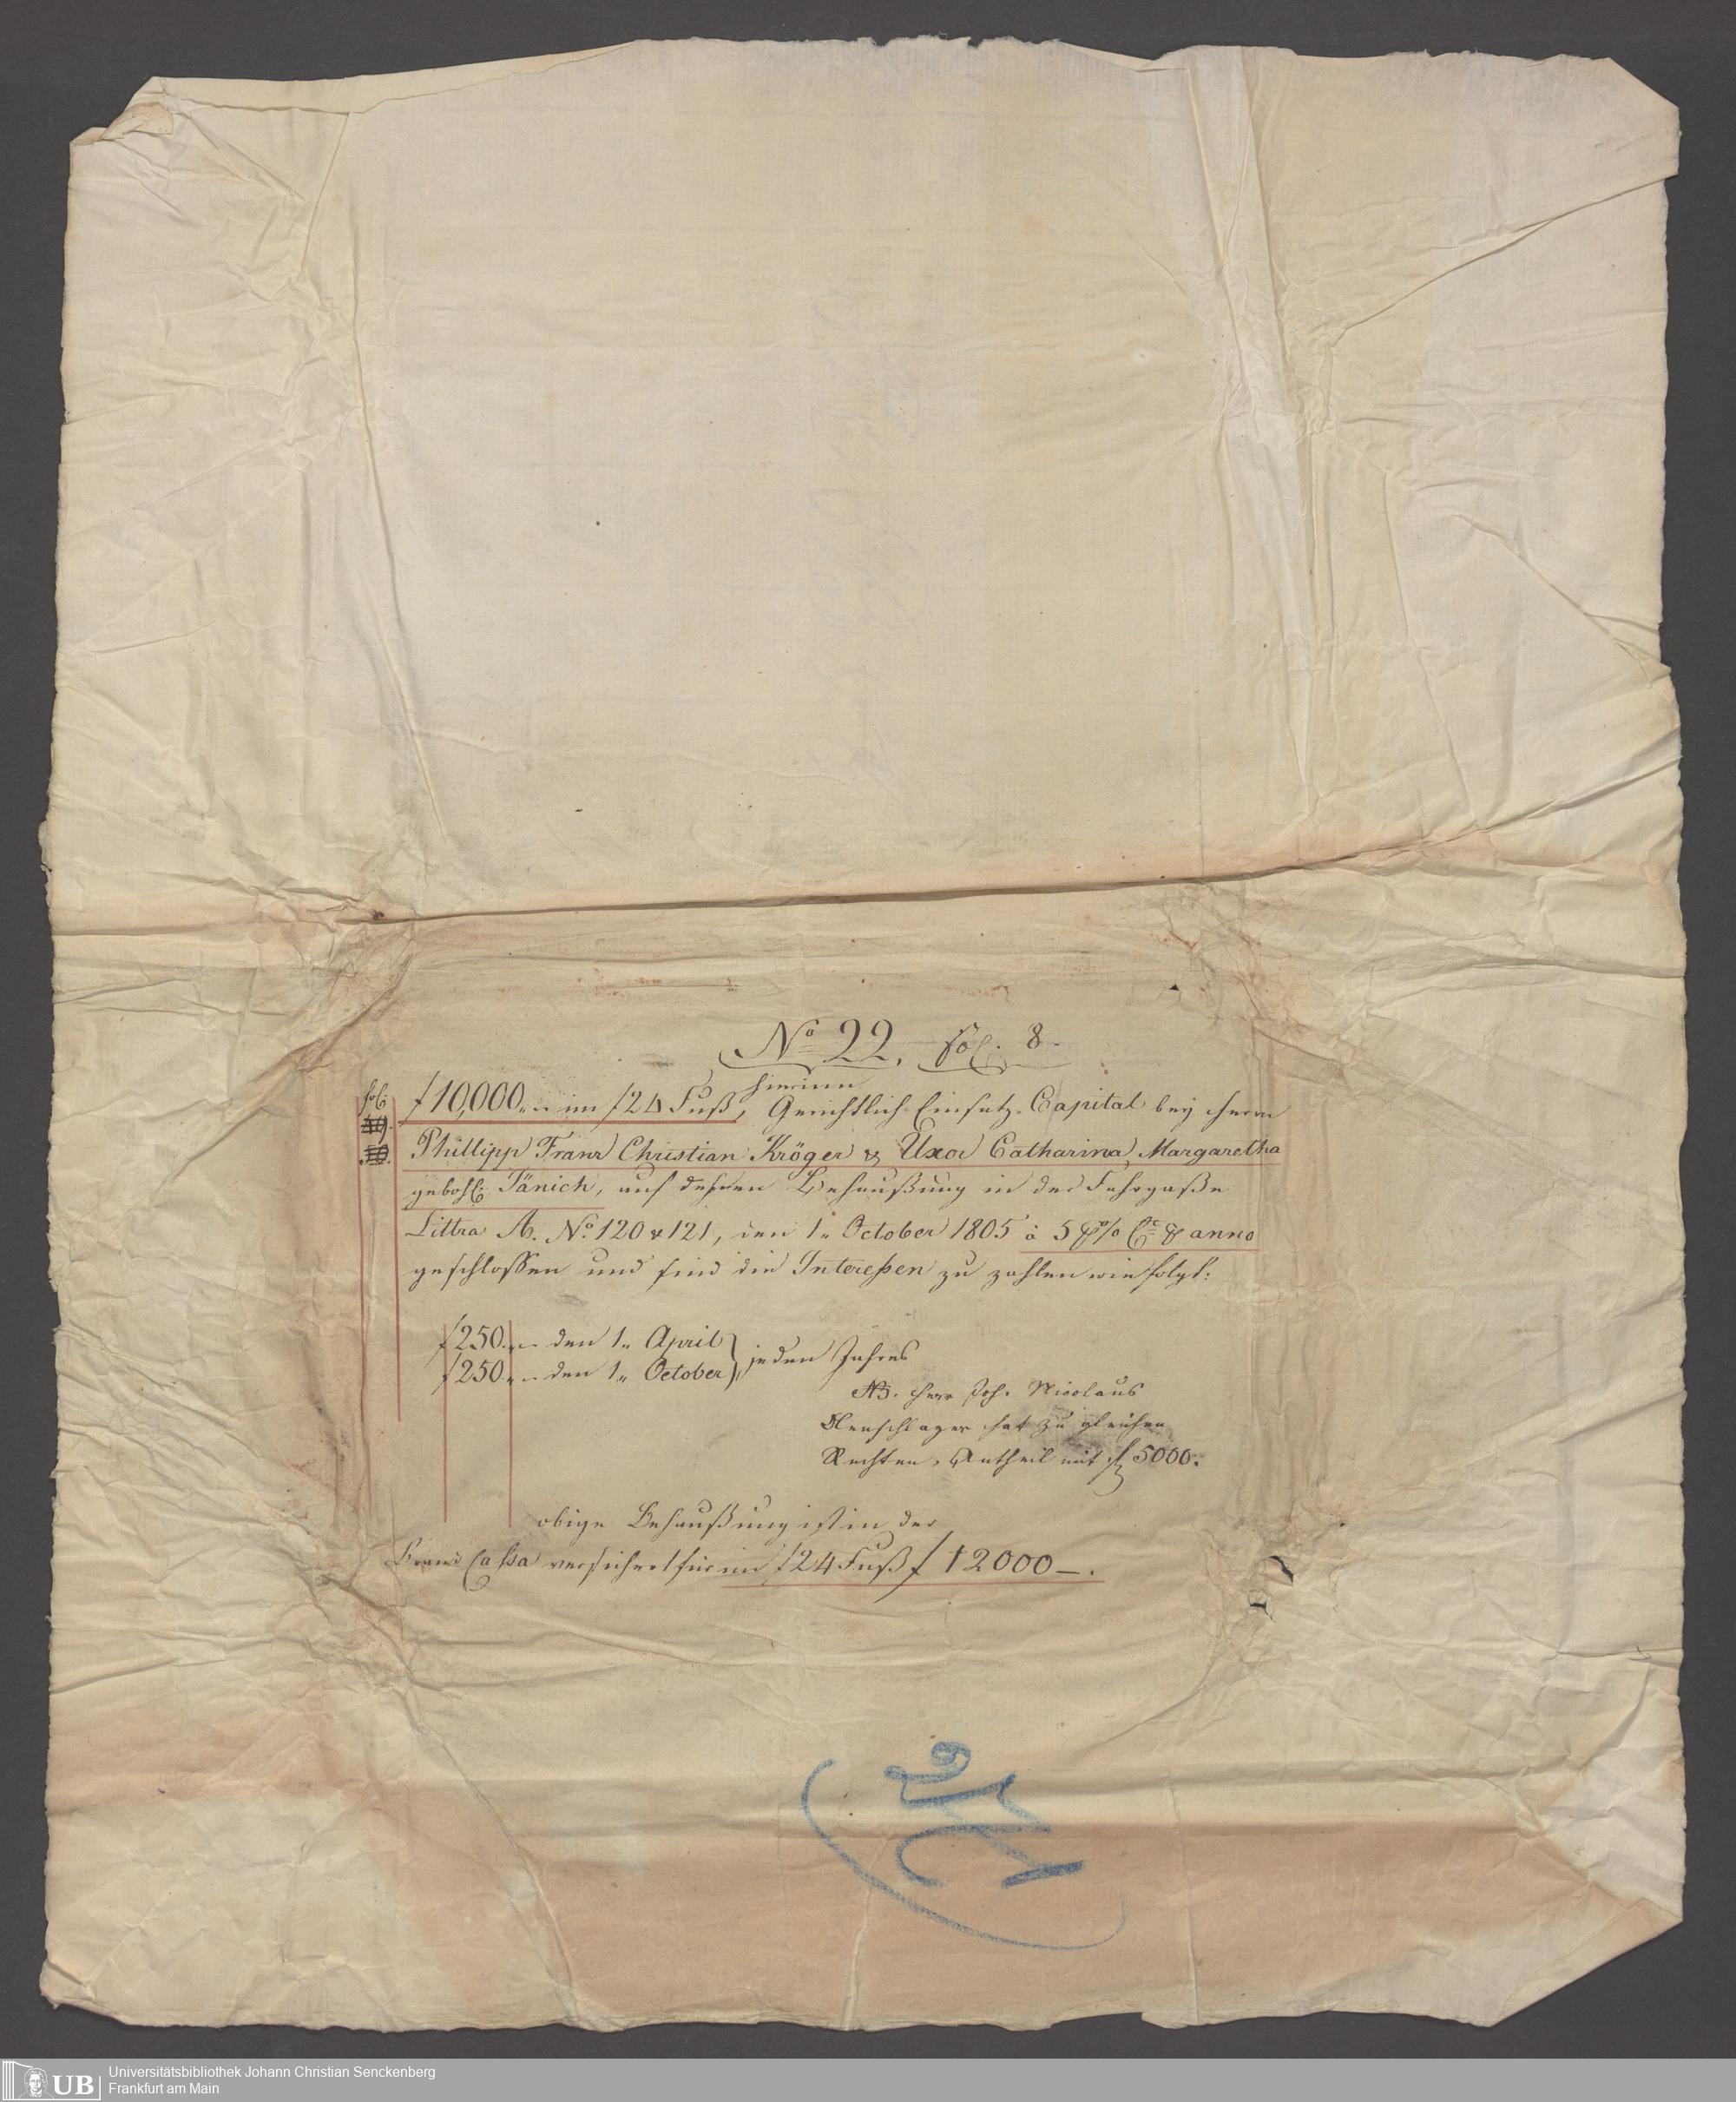 No 22. fol. 8.
hierinn
fol:
f 10,000.,- im f 24 Fuß, Gerichtlich Einsatz-Capital bey Herrn
Phillipp Franz Christian Kröger & Uxor Catharina Margaretha
gebohr: Jänich, auf deßen Behaußung in der Fahrgaße
Littra A. No. 120 & 121, den 1" October 1805 à 5 p% Ct p anno
geschlossen und sind die Intereßen zu zahlen wie folgt:
f 250.,- den 1" April
f 250.,- den 1" October } jeden Jahres
NB. Herr Joh. Nicolaus
Olenschlager hat zu gleichen
Rechten, Antheil mit f 5000.
obige Behaußung ist in der
Brand Cassa versichert für im f 24 Fuß f 12000 —.
Universitätsbibliothek Johann Christian Senckenberg
Frankfurt am Main
UB